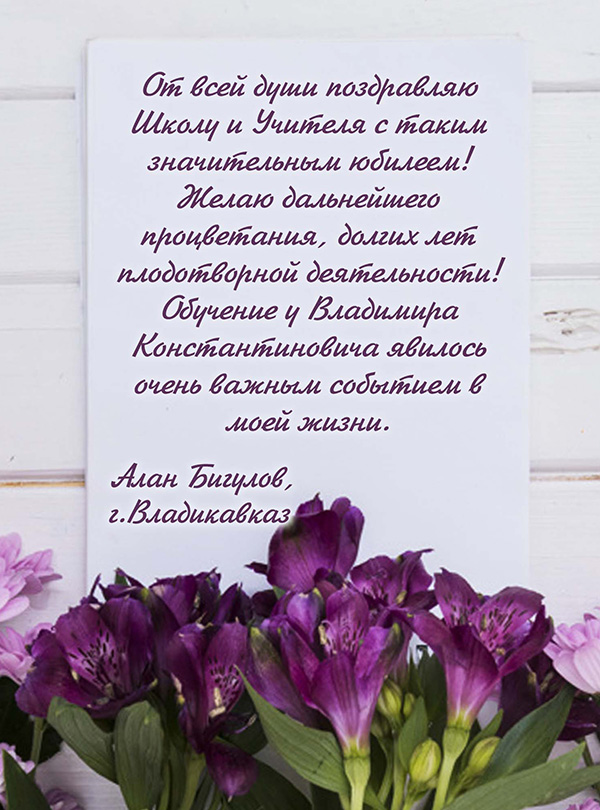 От всей души поздравляю
Школу и Учителя с таким
значительным юбилеем!
Желаю дальнейшего
процветания, долгих лет
плодотворной деятельности!
Обучение у Владимира
Константиновича явилось
очень важным событием в
моей жизни.
Алан Бигулов,
г.Владикавказ